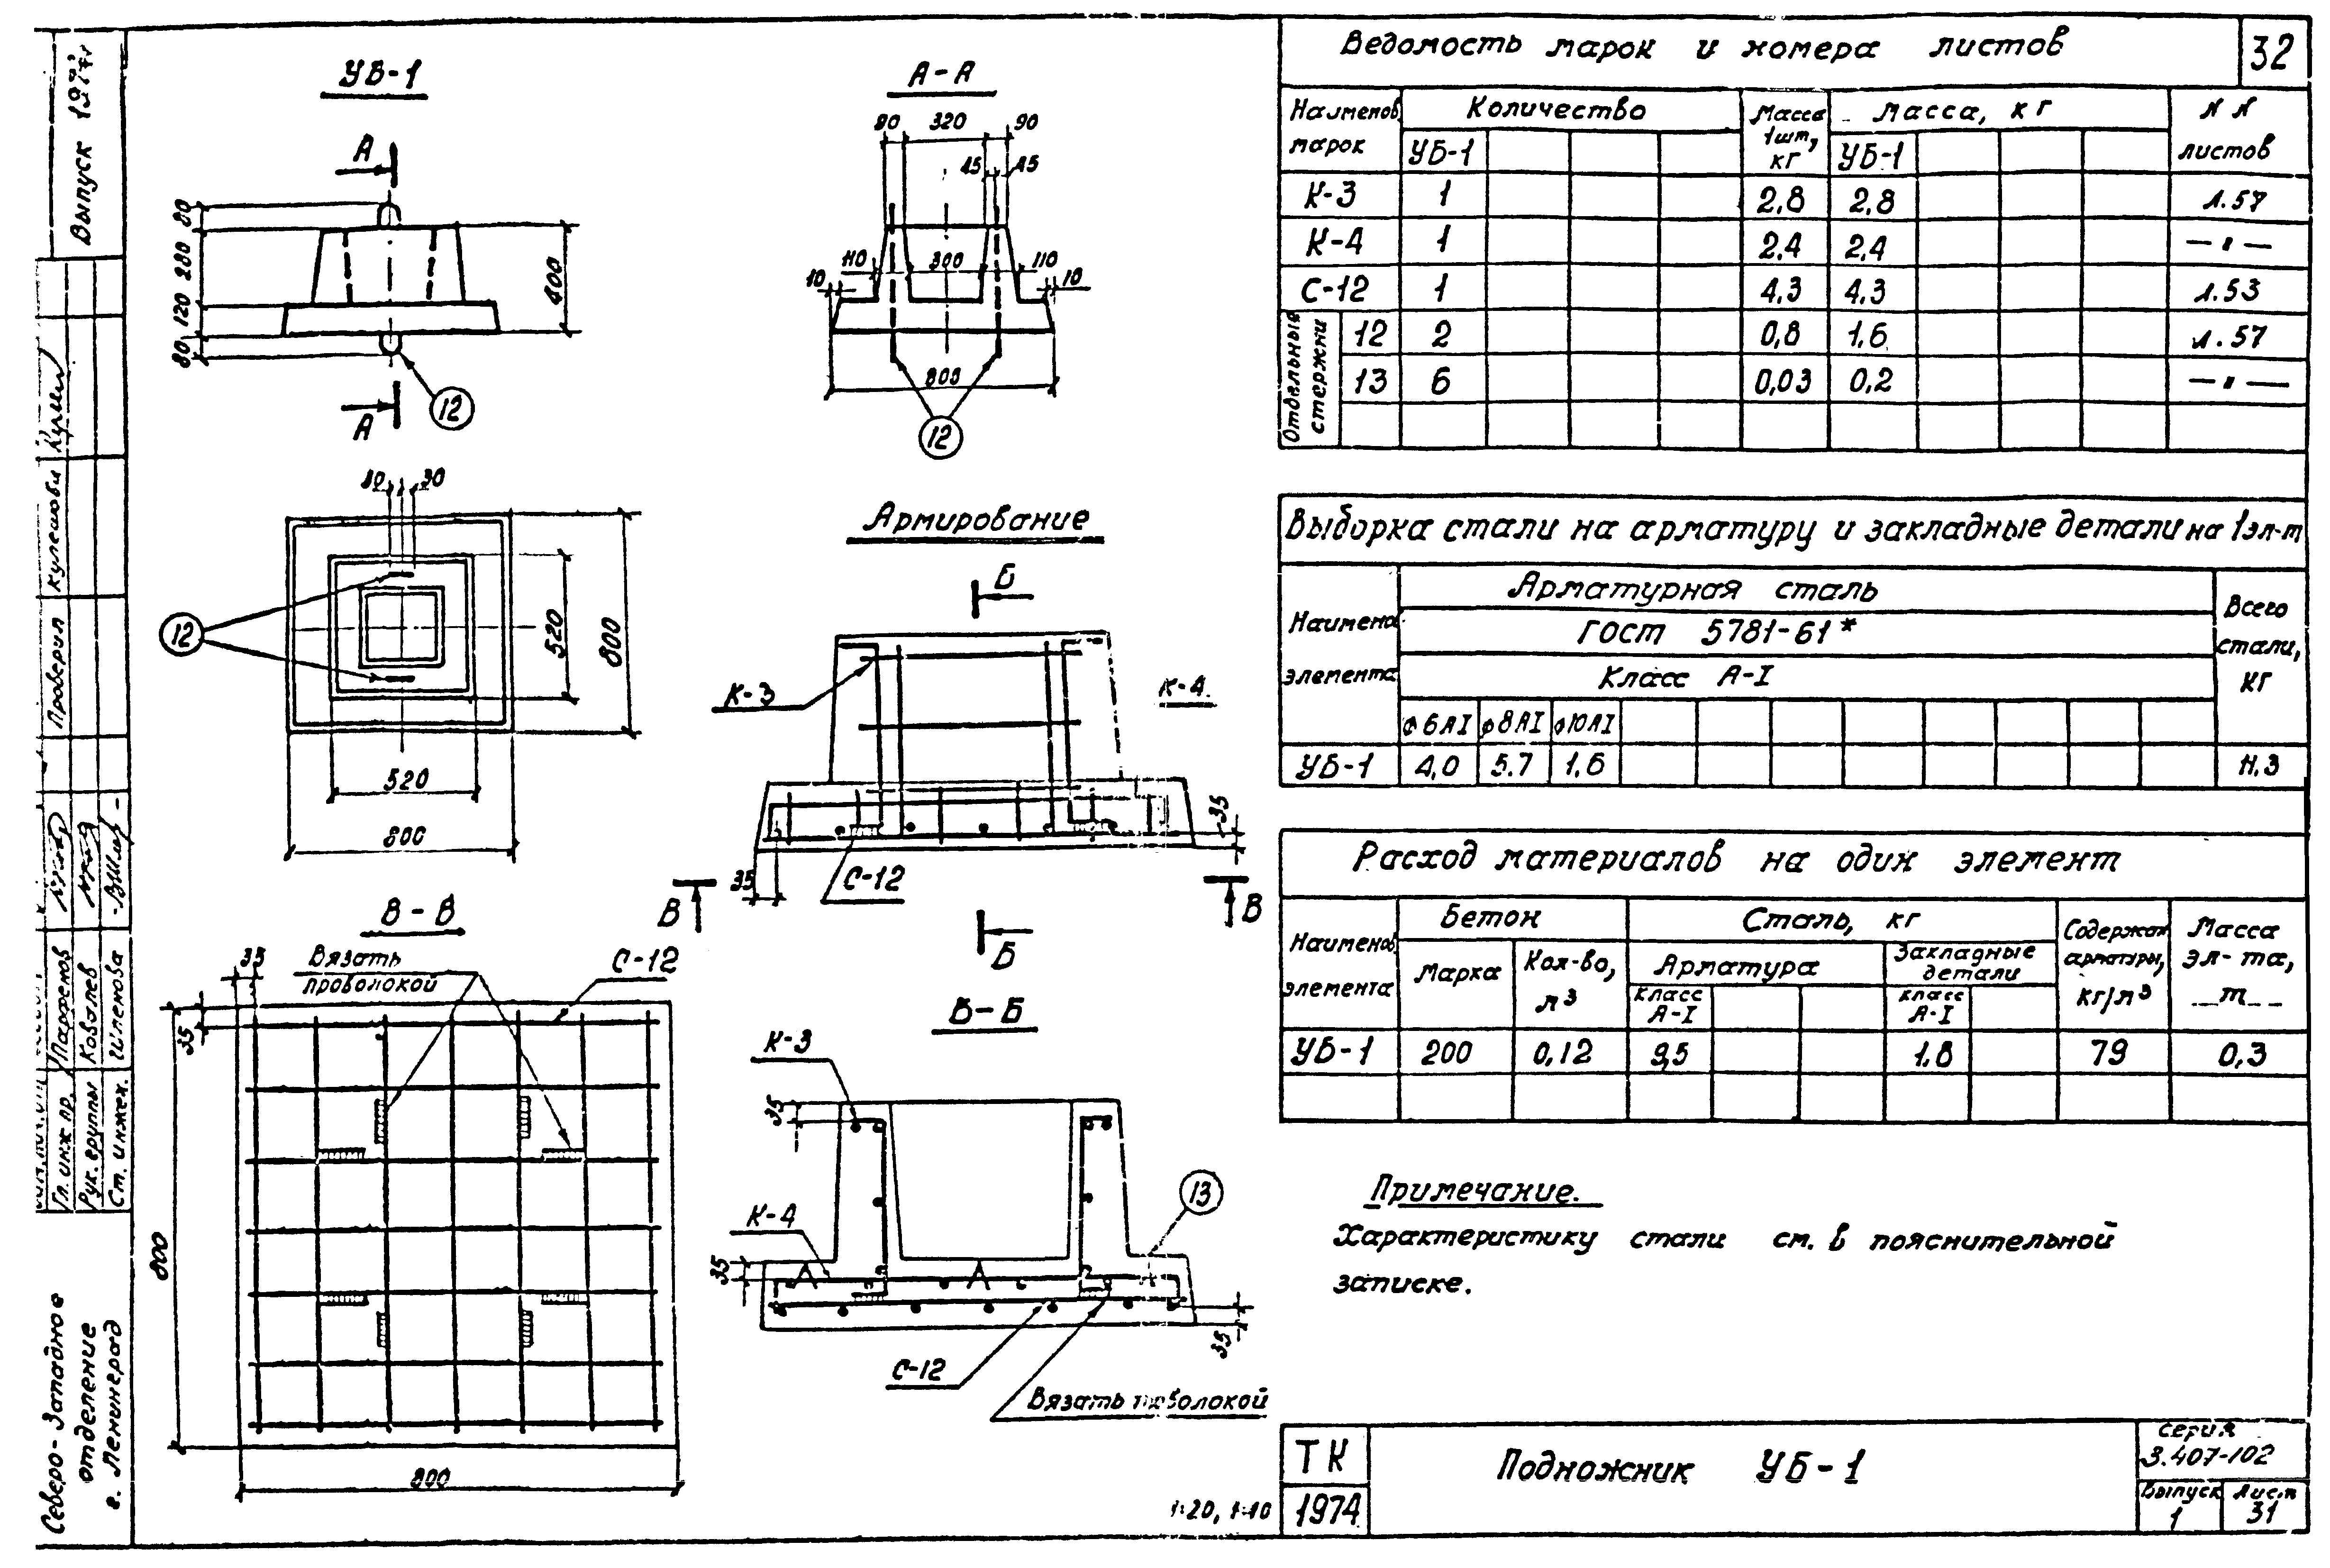 Выпуск 197
Проверил Кулешова
Гл. инж. пр. Парфенов
Рук. группы Ковалев
Ст. инжен. Шленова
Северо-Западное
отделение
г. Ленинград
УБ-1
А
80
280
120
80
400
А
12
А-А
90 320 90
45 45
110 300 110
10 10
800
12
30 30
12
520
800
520
800
Армирование
Б
К-3
К-4
35
35
С-12
В В
Б
В-В
35
Вязать
проволокой
С-12
35
800
800
Б-Б
К-3
35
13
К-4
35
35
С-12
Вязать проволокой
1:20, 1:10
Ведомость марок и номера листов
32
Наименов. марок
Количество
Масса 1шт, кг
Масса, кг
NN листов
УБ-1 УБ-1
К-3 1 2,8 2,8 л.57
К-4 1 2,4 2,4 —"—
С-12 1 4,3 4,3 л.53
Отдельные стержни
12 2 0,8 1,6 л.57
13 6 0,03 0,2 —"—
Выборка стали на арматуру и закладные детали на 1 эл-т
Наименов. элемента
Арматурная сталь
ГОСТ 5781-61*
Класс А-I
Всего стали, кг
ф6АI ф8АI ф10АI
УБ-1 4,0 5.7 1,6 11.3
Расход материалов на один элемент
Наименов. элемента
Бетон
Сталь, кг
Содержан. арматуры, кг/м³
Масса эл-та, т
Марка
Кол-во, м³
Арматура
Закладные детали
Класс А-I
Класс А-I
УБ-1 200 0,12 9,5 1,8 79 0,3
Примечание.
Характеристику стали см. в пояснительной
записке.
ТК
1974
Подножник УБ-1
Серия
3.407-102
Выпуск
1
Лист
31